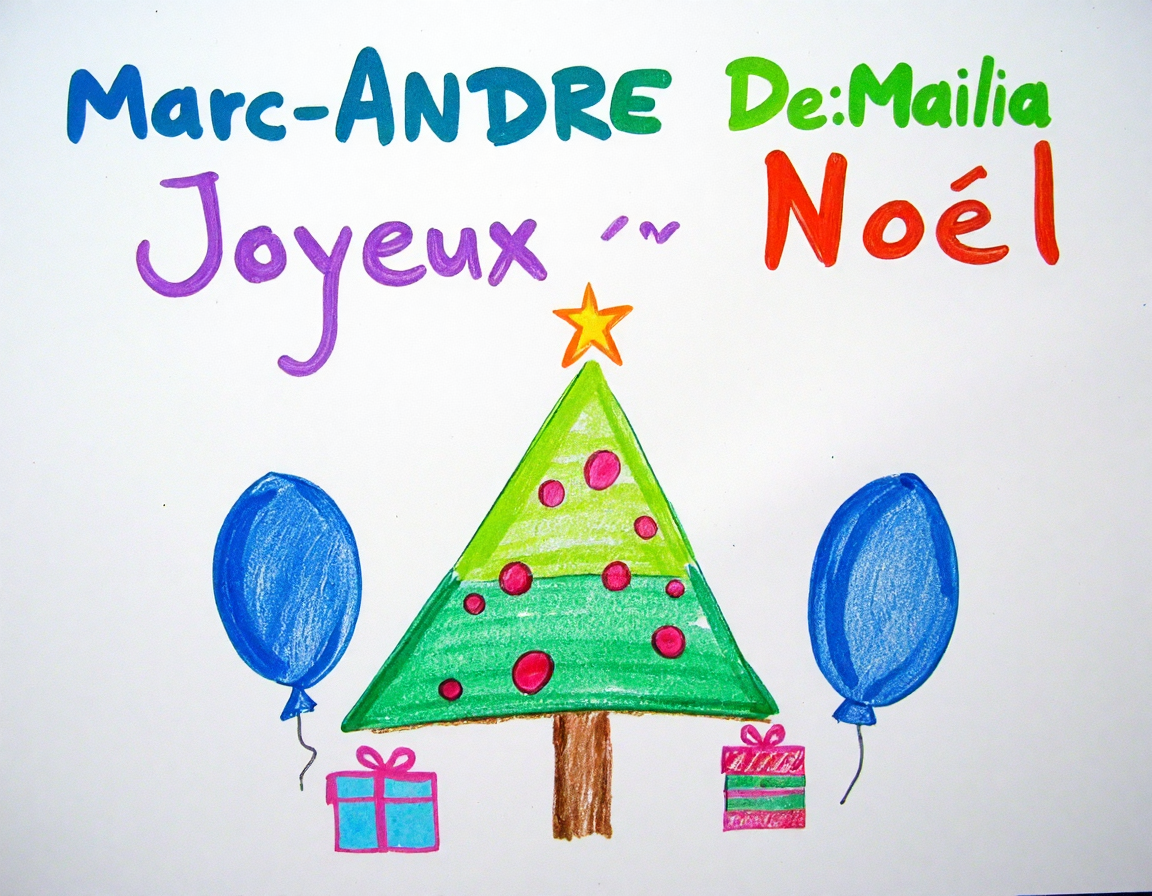 Marc-ANDRE De:Mailia
Joyeux Noél